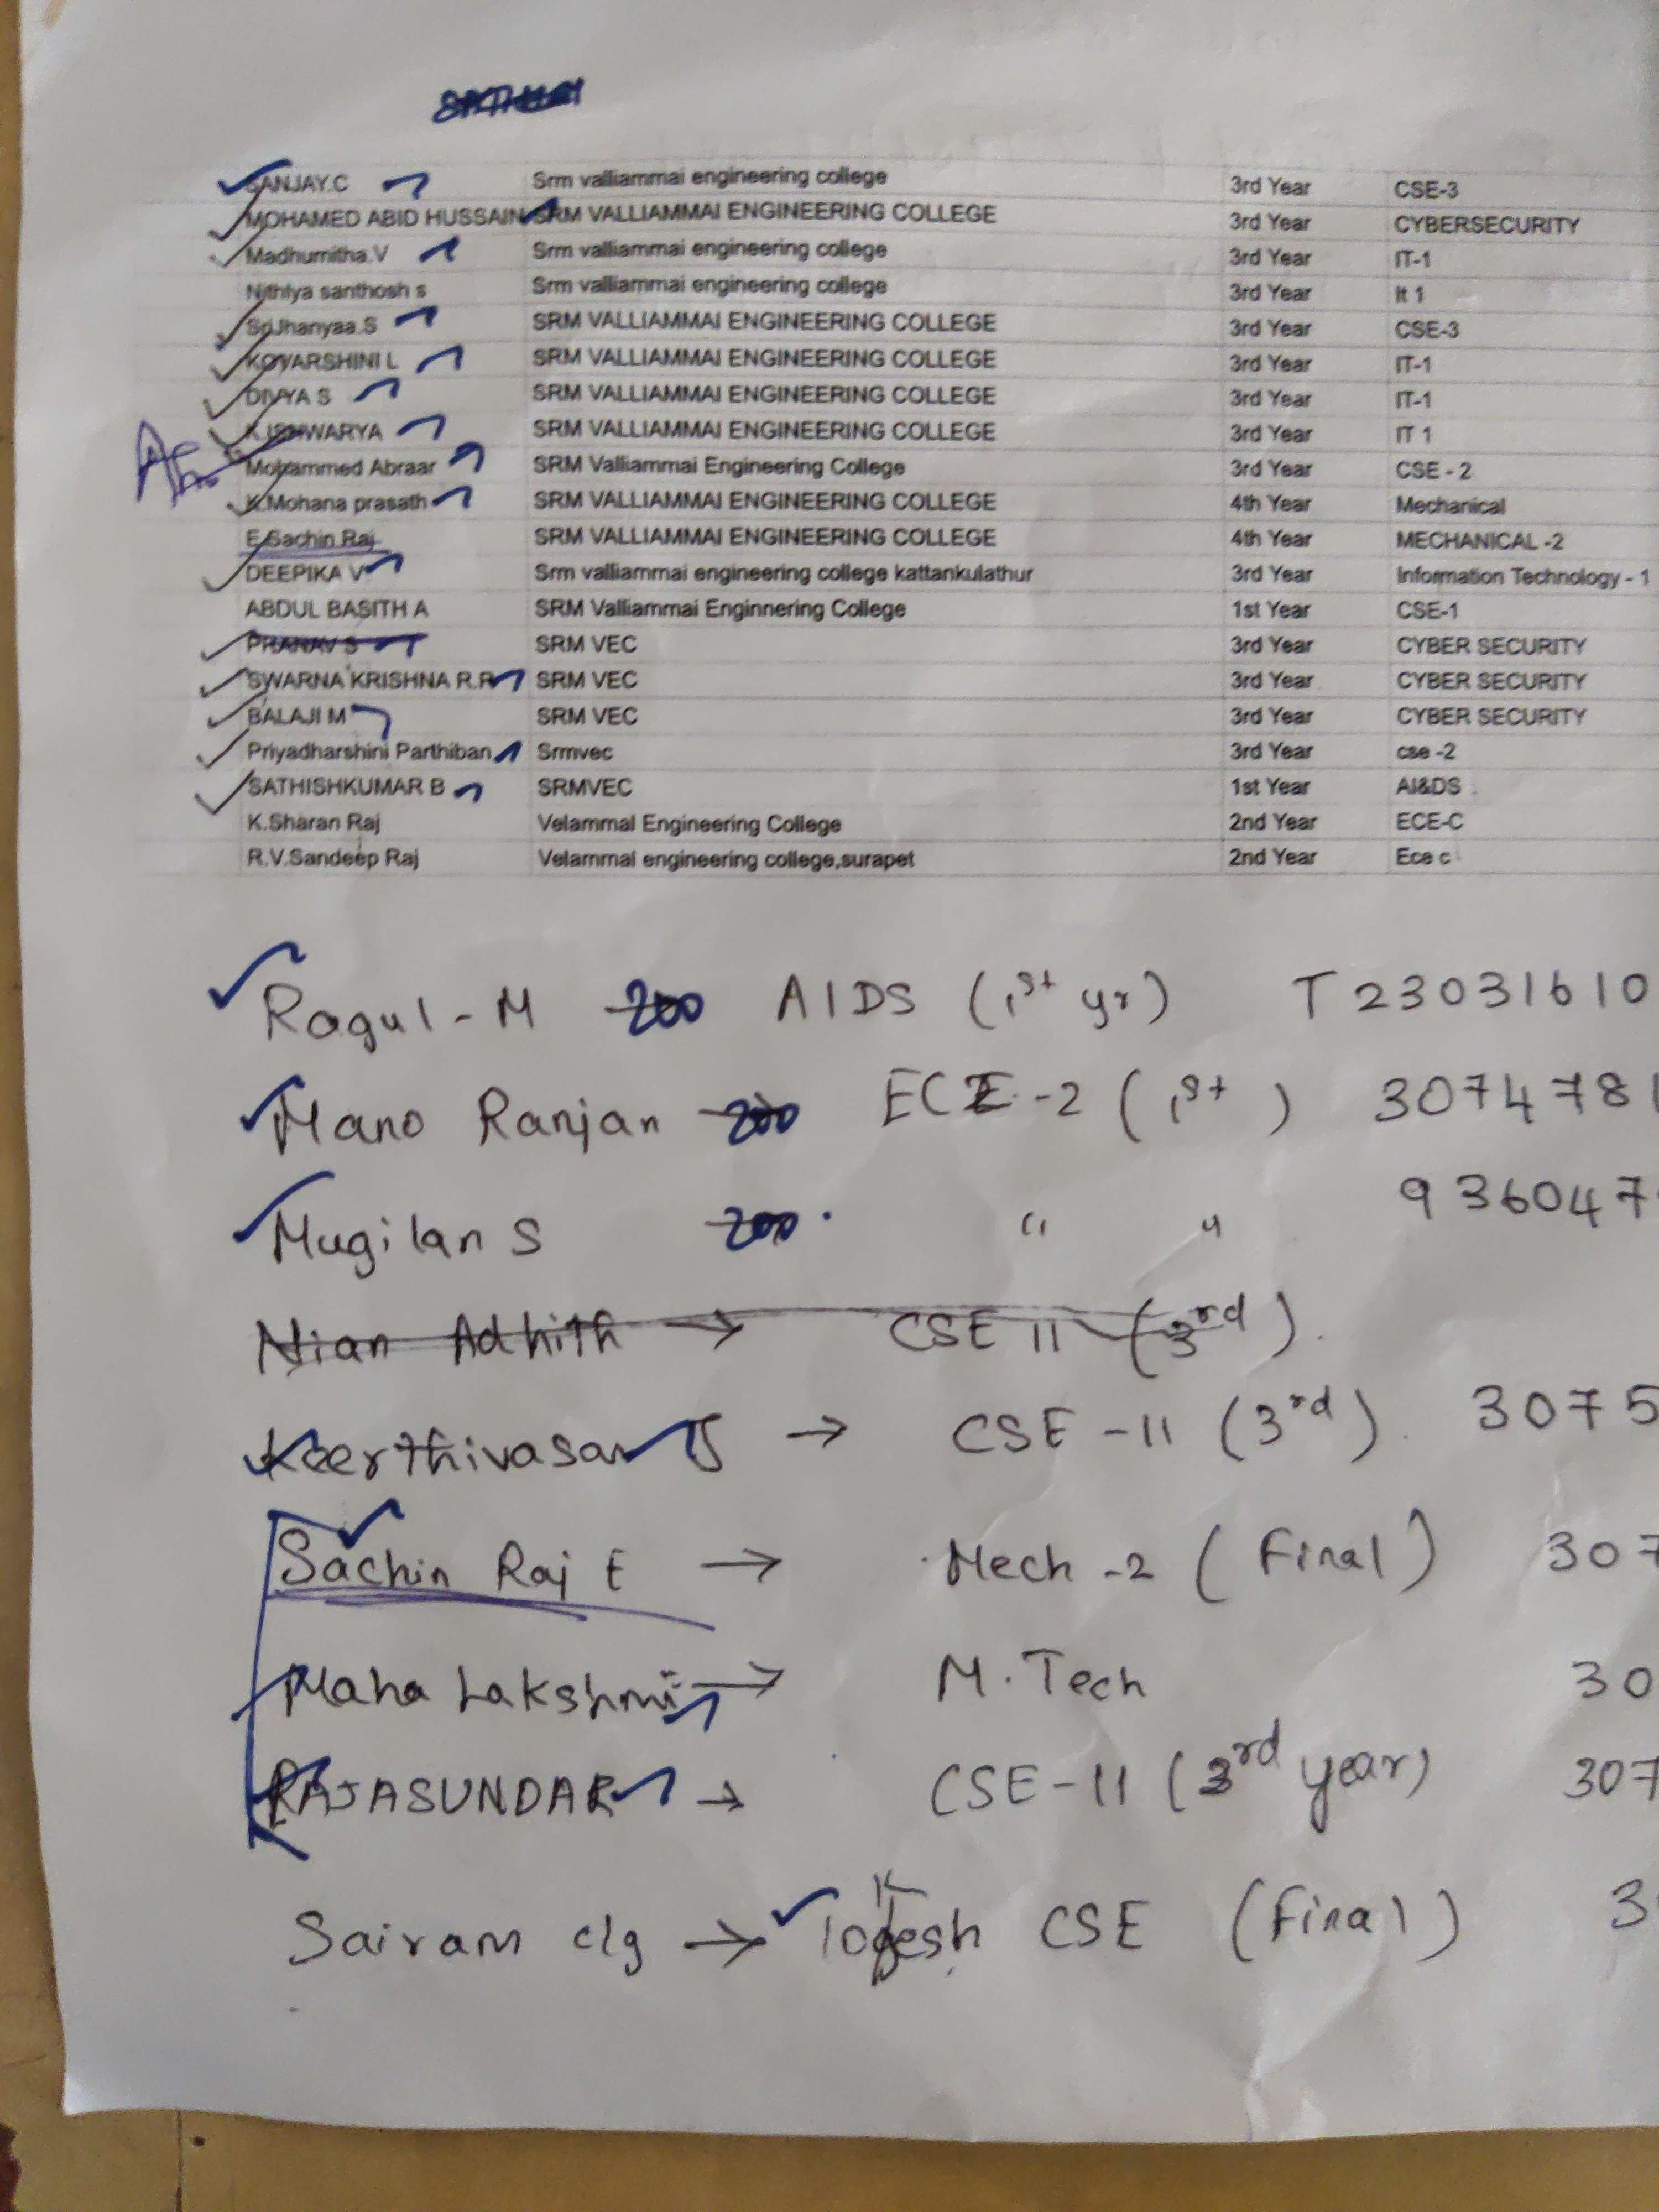 SANJAY.C Srm valliammai engineering college 3rd Year CSE-3
MOHAMED ABID HUSSAIN SRM VALLIAMMAI ENGINEERING COLLEGE 3rd Year CYBERSECURITY
Madhumitha.V Srm valliammai engineering college 3rd Year IT-1
Nithiya santhosh s Srm valliammai engineering college 3rd Year It 1
SriJhanyaa.S SRM VALLIAMMAI ENGINEERING COLLEGE 3rd Year CSE-3
KOVARSHINI L SRM VALLIAMMAI ENGINEERING COLLEGE 3rd Year IT-1
DIVYA S SRM VALLIAMMAI ENGINEERING COLLEGE 3rd Year IT-1
SRM VALLIAMMAI ENGINEERING COLLEGE 3rd Year IT 1
Mohammed Abraar SRM Valliammai Engineering College 3rd Year CSE - 2
K.Mohana prasath SRM VALLIAMMAI ENGINEERING COLLEGE 4th Year Mechanical
E.Sachin Raj SRM VALLIAMMAI ENGINEERING COLLEGE 4th Year MECHANICAL -2
DEEPIKA V Srm valliammai engineering college kattankulathur 3rd Year Information Technology - 1
ABDUL BASITH A SRM Valliammai Enginnering College 1st Year CSE-1
PRANAV S SRM VEC 3rd Year CYBER SECURITY
SWARNA KRISHNA R.R SRM VEC 3rd Year CYBER SECURITY
BALAJI M SRM VEC 3rd Year CYBER SECURITY
Priyadharshini Parthiban Srmvec 3rd Year cse -2
SATHISHKUMAR B SRMVEC 1st Year AI&DS
K.Sharan Raj Velammal Engineering College 2nd Year ECE-C
R.V.Sandeep Raj Velammal engineering college,surapet 2nd Year Ece c
Ragul - M 200 AIDS (1st yr) T 23031610
Mano Ranjan 200 ECE -2 (1st) 3074781
Mugilan S 200 " " 936047
Nian Adhith → CSE II (3rd).
Keerthivasan → CSE -II (3rd). 3075
Sachin Raj E → Mech -2 (Final) 307
Maha Lakshmi → M.Tech 30
RAJASUNDAR → CSE-II (3rd year) 307
Sairam clg → CSE (Final) 3